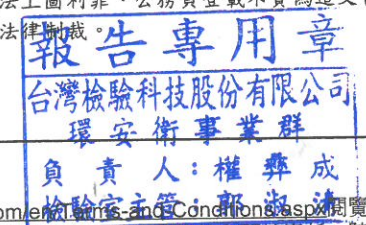 法上圖利罪、公務員登載不實偽造文
法律制裁。
報告專用章
台灣檢驗科技股份有限公司
環安衛事業群
負責人：權彝成
檢驗室主管：郭淑清
om/en/Terms-and-Conditions.aspx閱覽